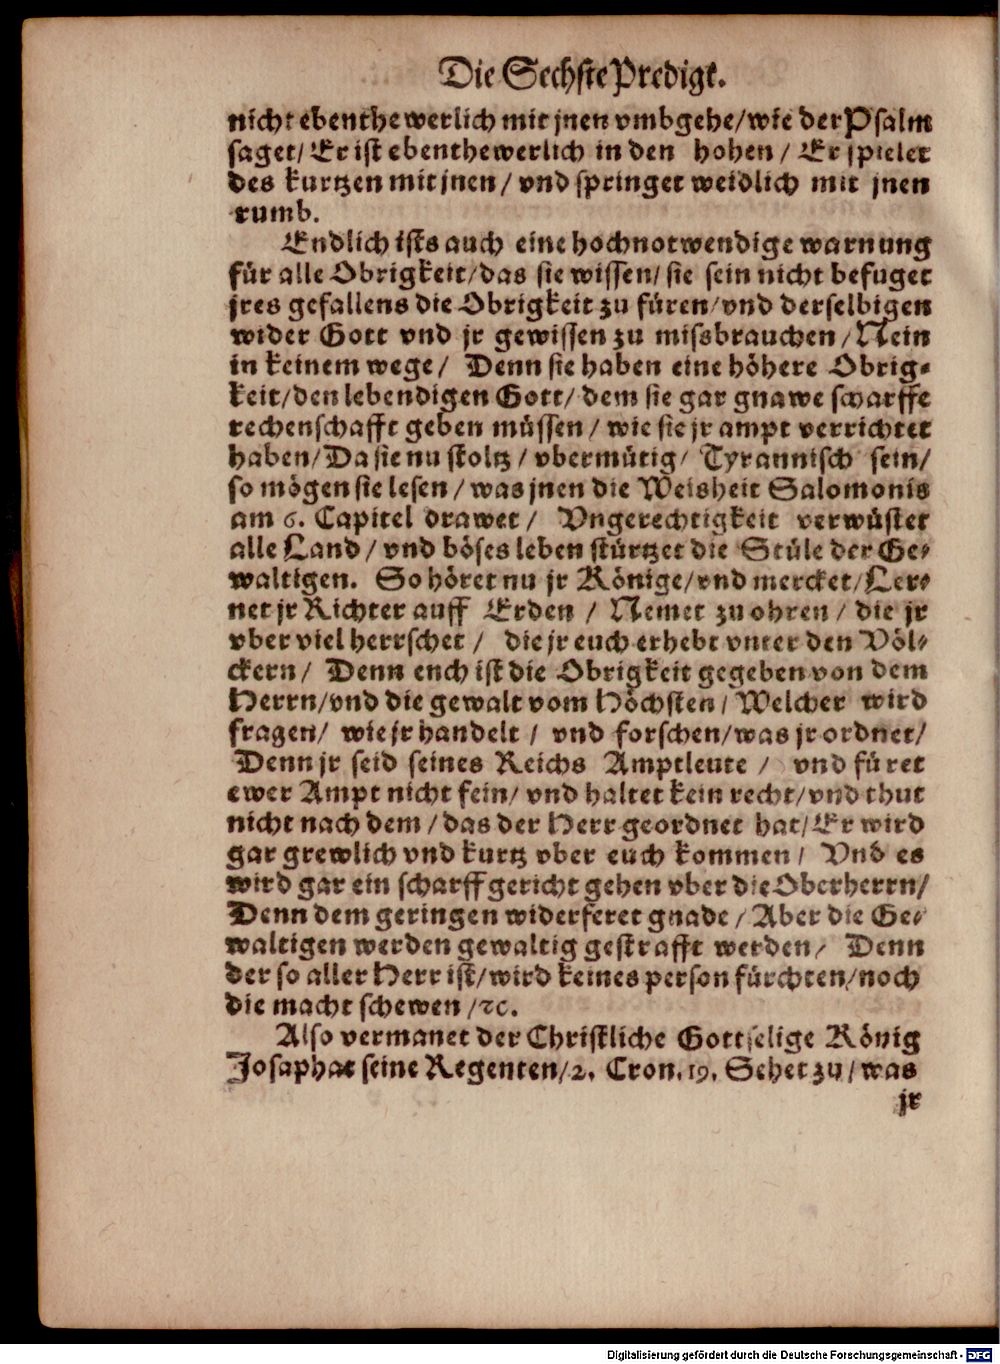 Die Sechste Predigt.
nicht ebenthewerlich mit jnen vmbgehe/wie der Psalm
saget/ Er ist ebenthewerlich in den hohen/ Er spielet
des kurtzen mit jnen/ vnd springet weidlich mit jnen
rumb.
Endlich ists auch eine hochnotwendige warnung
für alle Obrigkeit/das sie wissen/ sie sein nicht befuget
jres gefallens die Obrigkeit zu füren/vnd derselbigen
wider Gott vnd jr gewissen zu missbrauchen/Nein
in keinem wege/ Denn sie haben eine höhere Obrig-
keit/den lebendigen Gott/ dem sie gar gnawe scharffe
rechenschafft geben müssen/ wie sie jr ampt verrichtet
haben/Da sie nu stoltz/ vbermütig/ Tyrannisch sein/
so mögen sie lesen/ was jnen die Weisheit Salomonis
am 6. Capitel drawet/ Vngerechtigkeit verwüstet
alle Land/ vnd böses leben stürtzet die Stüle der Ge-
waltigen. So höret nu jr Könige/vnd mercket/Ler-
net jr Richter auff Erden/ Nemet zu ohren/ die jr
vber viel herrschet/ die jr euch erhebt vnter den Völ-
ckern/ Denn ench ist die Obrigkeit gegeben von dem
Herrn/vnd die gewalt vom Höchsten/ Welcher wird
fragen/ wie jr handelt/ vnd forschen/was jr ordnet/
Denn jr seid seines Reichs Amptleute/ vnd füret
ewer Ampt nicht fein/ vnd haltet kein recht/vnd thut
nicht nach dem/ das der Herr geordnet hat/Er wird
gar grewlich vnd kurtz vber euch kommen/ Vnd es
wird gar ein scharff gericht gehen vber die Oberherrn/
Denn dem geringen widerferet gnade/ Aber die Ge-
waltigen werden gewaltig gestrafft werden/ Denn
der so aller Herr ist/wird keines person fürchten/noch
die macht schewen/ꝛc.
Also vermanet der Christliche Gottselige König
Josaphat seine Regenten/2. Cron. 19. Sehet zu/ was
jr
Digitalisierung gefördert durch die Deutsche Forschungsgemeinschaft - DFG